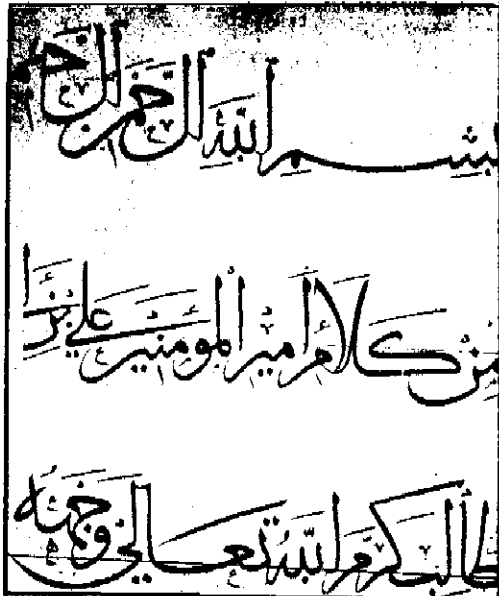 بسم الله الرحمن الرحيم
من كلام أمير المؤمنين علي بن أ
طالب كرم الله تعالى وجهه